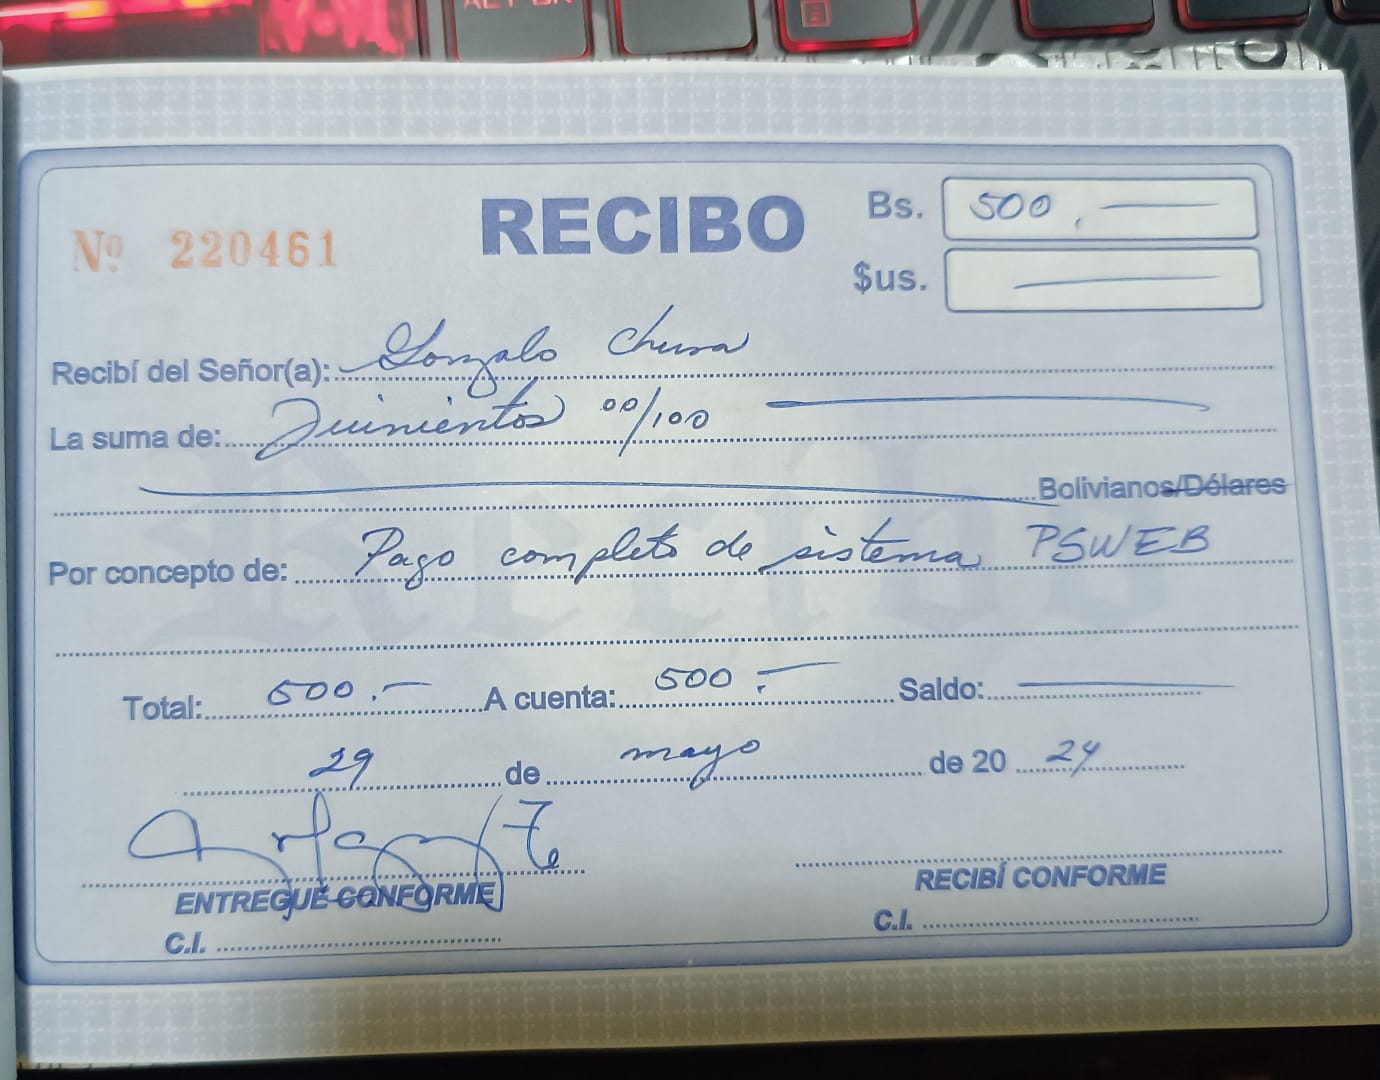 RECIBO
Bs. 500.
Nº 220461
$us.
Recibí del Señor(a): Gonzalo Chura
La suma de: Quinientos 00/100
Bolivianos/Dólares
Por concepto de: Pago completo de sistema PSWEB
Total: 500.- A cuenta: 500.- Saldo:
29 de mayo de 20 24
ENTREGUÉ CONFORME
RECIBÍ CONFORME
C.I.
C.I.